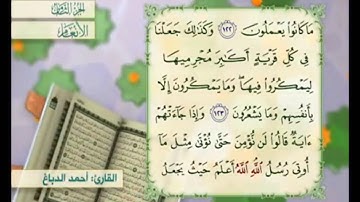 الجزء الثامن
الأنعام
مَا كَانُوا۟ يَعْمَلُونَ ١٢٢ وَكَذَٰلِكَ جَعَلْنَا
فِى كُلِّ قَرْيَةٍ أَكَٰبِرَ مُجْرِمِيهَا
لِيَمْكُرُوا۟ فِيهَا وَمَا يَمْكُرُونَ إِلَّا
بِأَنفُسِهِمْ وَمَا يَشْعُرُونَ ١٢٣ وَإِذَا جَآءَتْهُمْ
ءَايَةٌ قَالُوا۟ لَن نُّؤْمِنَ حَتَّىٰ نُؤْتَىٰ مِثْلَ مَآ
أُوتِىَ رُسُلُ ٱللَّهِ ٱللَّهُ أَعْلَمُ حَيْثُ يَجْعَلُ
القارئ: أحمد الدباغ